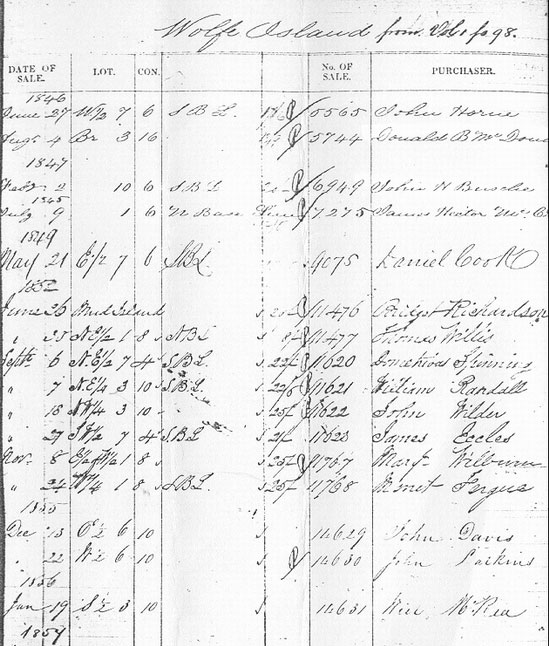 Wolfe Island from Vol 1 fo 98.
DATE OF SALE. LOT. CON. No. OF SALE. PURCHASER.
1846
June 27 W½ 7 6 S B L 5565 John Horne
Augt 4 Br 3 16 5744 Donald B Mc
1847
Feby 2 10 6 S B L 6949 John H
July 9 1 6 N Base 7275 James Hector
1849
May 21 E½ 7 6 S B L 9075 Daniel Cook
1852
June 26 Mud Island 11476 Bridget Richardson
" 25 N.E½ 1 8 N B L 11477 Thomas Willis
Septr 6 N.E½ 7 4 S B L 11620
" 7 N.E¼ 3 10 S B L 11621 William Randall
" 18 N W¼ 3 10 11622 John Wilder
" 27 S W½ 7 4 S B L 11623 James Eccles
Nov. 8 E½ of W½ 1 8 11767 Mary Wilburn
" 24 W¼ 1 8 S B L 11768 Fergus
1855
Dec 13 E½ 6 10 14629 John Davis
" 22 W½ 6 10 14630 John Larkins
1856
Jan 19 S½ 3 10 14631 Will McRea
1857